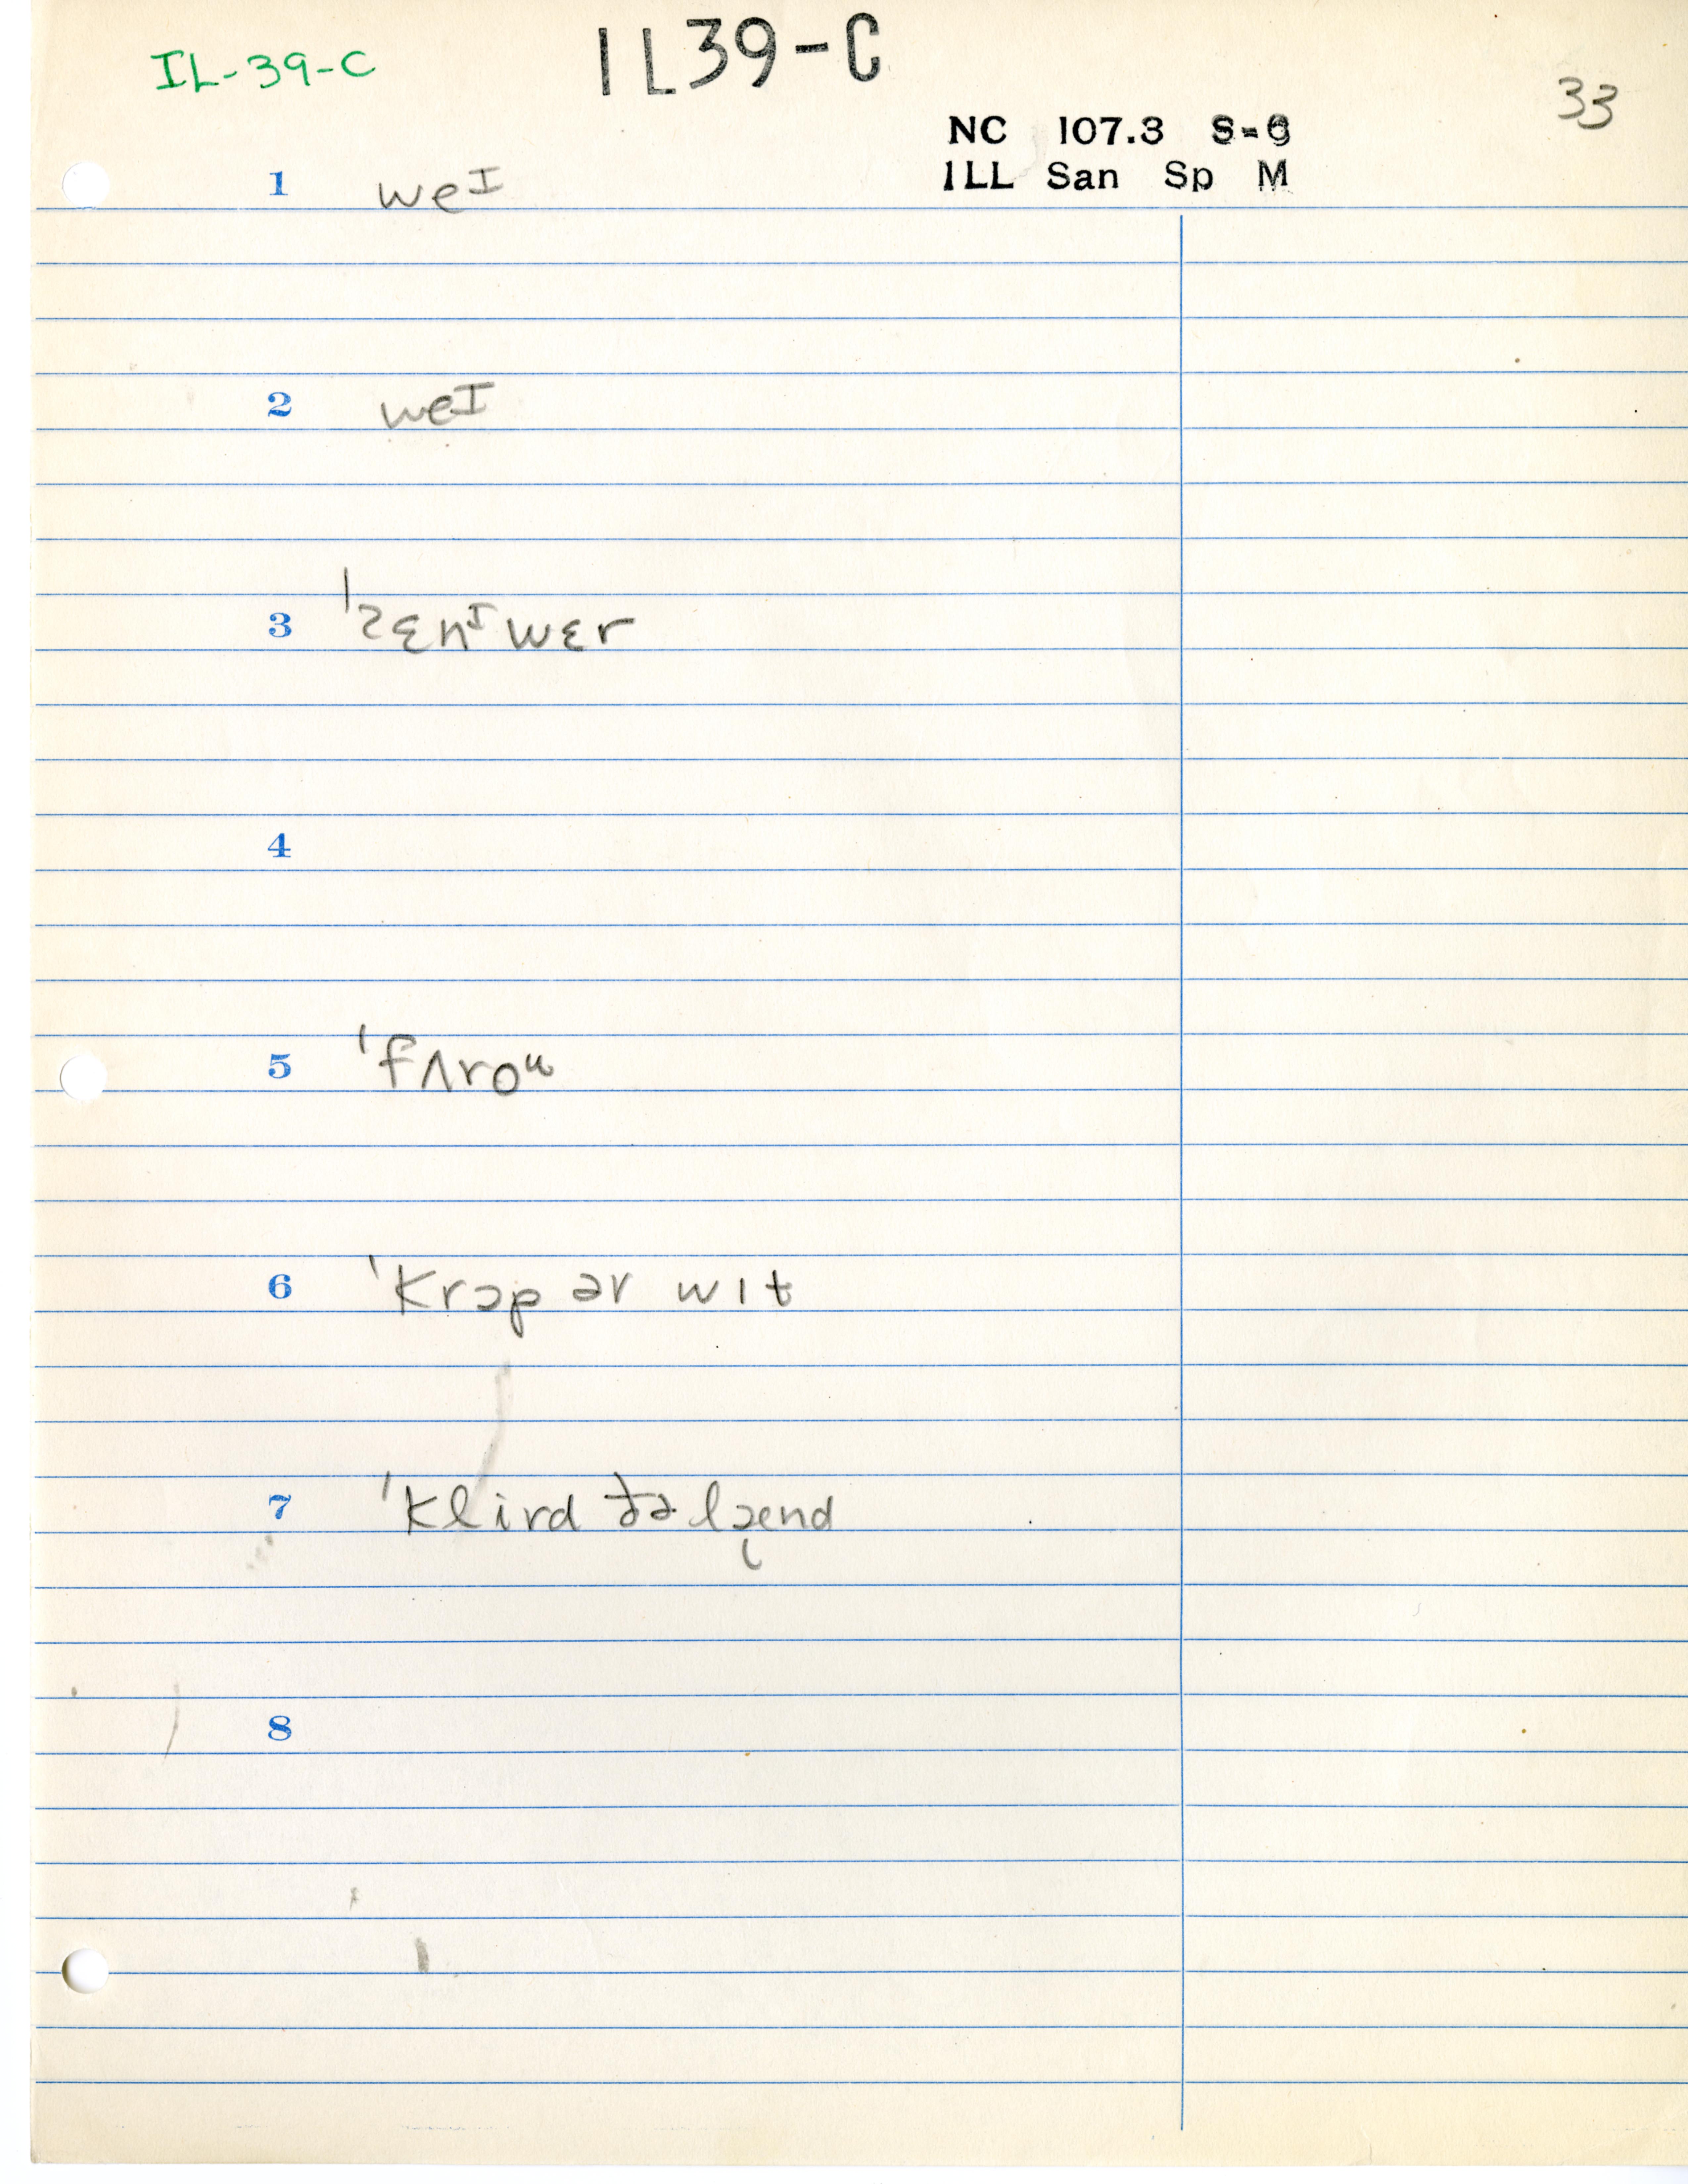 IL-39-C
IL39-C
33
NC 107.3 S=6
ILL San Sp M
1 weᴵ
2 weᴵ
3 ˈʔɛnᴵwɛr
4
5 ˈfʌroᵘ
6 ˈkrɔp ər wit
7 ˈklird ðə lænd
8